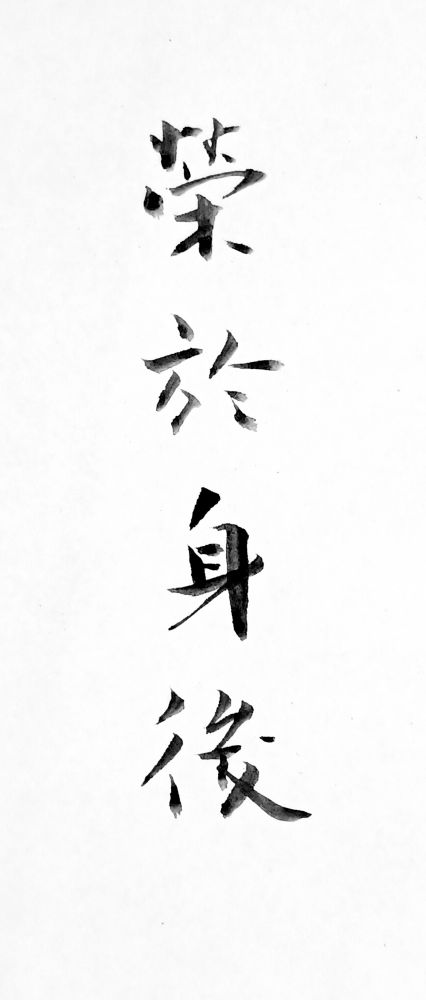 榮於身後